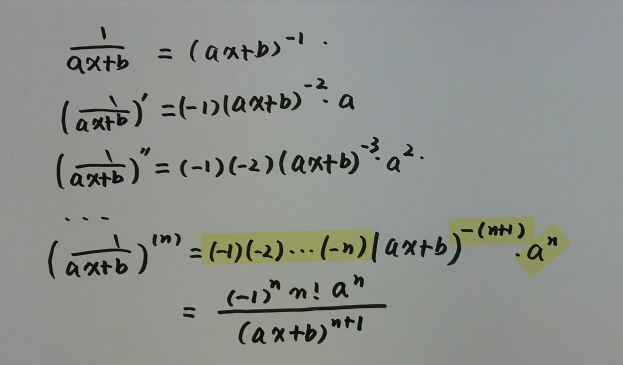 1/(ax+b) = (ax+b)^{-1}.
(1/(ax+b))' = (-1)(ax+b)^{-2}·a
(1/(ax+b))'' = (-1)(-2)(ax+b)^{-3}·a^2.
...
(1/(ax+b))^{(n)} = (-1)(-2)...(-n)(ax+b)^{-(n+1)}·a^n
= (-1)^n n! a^n/(ax+b)^{n+1}